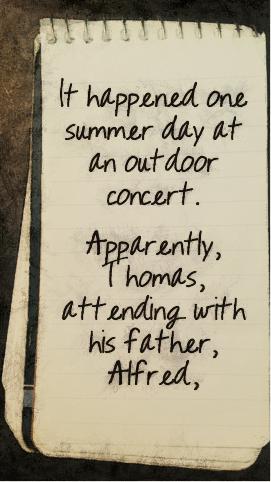 It happened one
summer day at
an outdoor
concert.
Apparently,
Thomas,
attending with
his father,
Alfred,